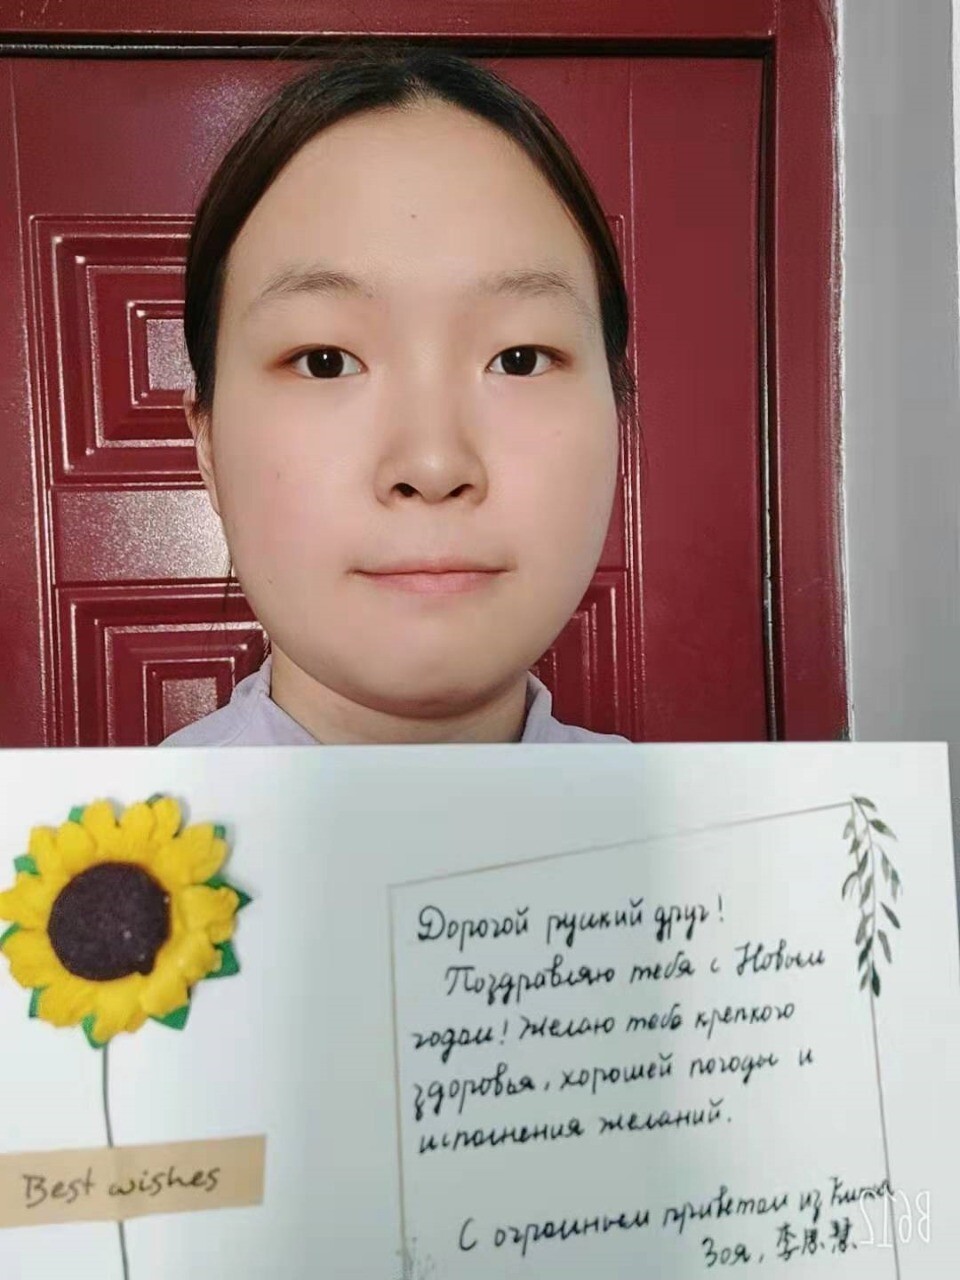 Дорогой русский друг!
Поздравляю тебя с Новым
годом! Желаю тебе крепкого
здоровья, хорошей погоды и
исполнения желаний.
С огромным приветом из Китая
Зоя, 李思慧
Best wishes
B612